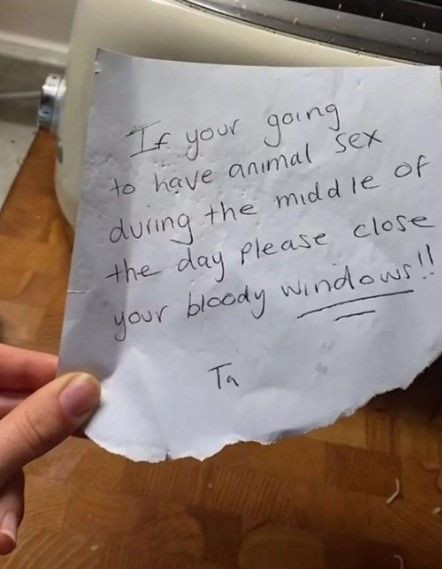 If your going
to have animal sex
during the middle of
the day please close
your bloody windows!!
Ta